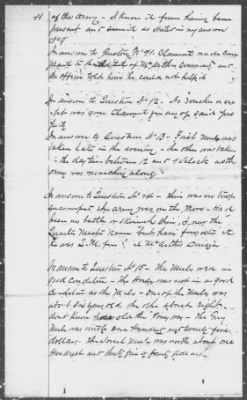 44 of this army - I know it from having been
present and served as stated in my answer
No 8
In answer to Question No 11. Claimant made Com
plaint to the of McArthur Company and
the Officer told him he could not help it
In answer to Question No 12 - No voucher or re
ceipt was given Claimant for any of said pro
perty
In answer to Question No 13 - First Mule was
taken late in the evening - the other was taken
in the day time between 12 and 1 o'clock as the
army was marching along
In answer to Question No 14 - there was no troops
encamped the army was on the Move - Had
been no battle or skirmish then, I saw the
Quarter Master Name but have forgotten it
he was 2 M. for McArthur Division
In answer to Question No 15 - The Mules were in
good Condition - the Horse was not in as good
Condition as the Mules - One of the Mules was
about six years old the other about eight -
dont know how old the Pony was - The Grey
Mule was worth One hundred and twenty five
dollars. The Sorrel Mule was worth about one
Hundred and thirty five or forty dollars -